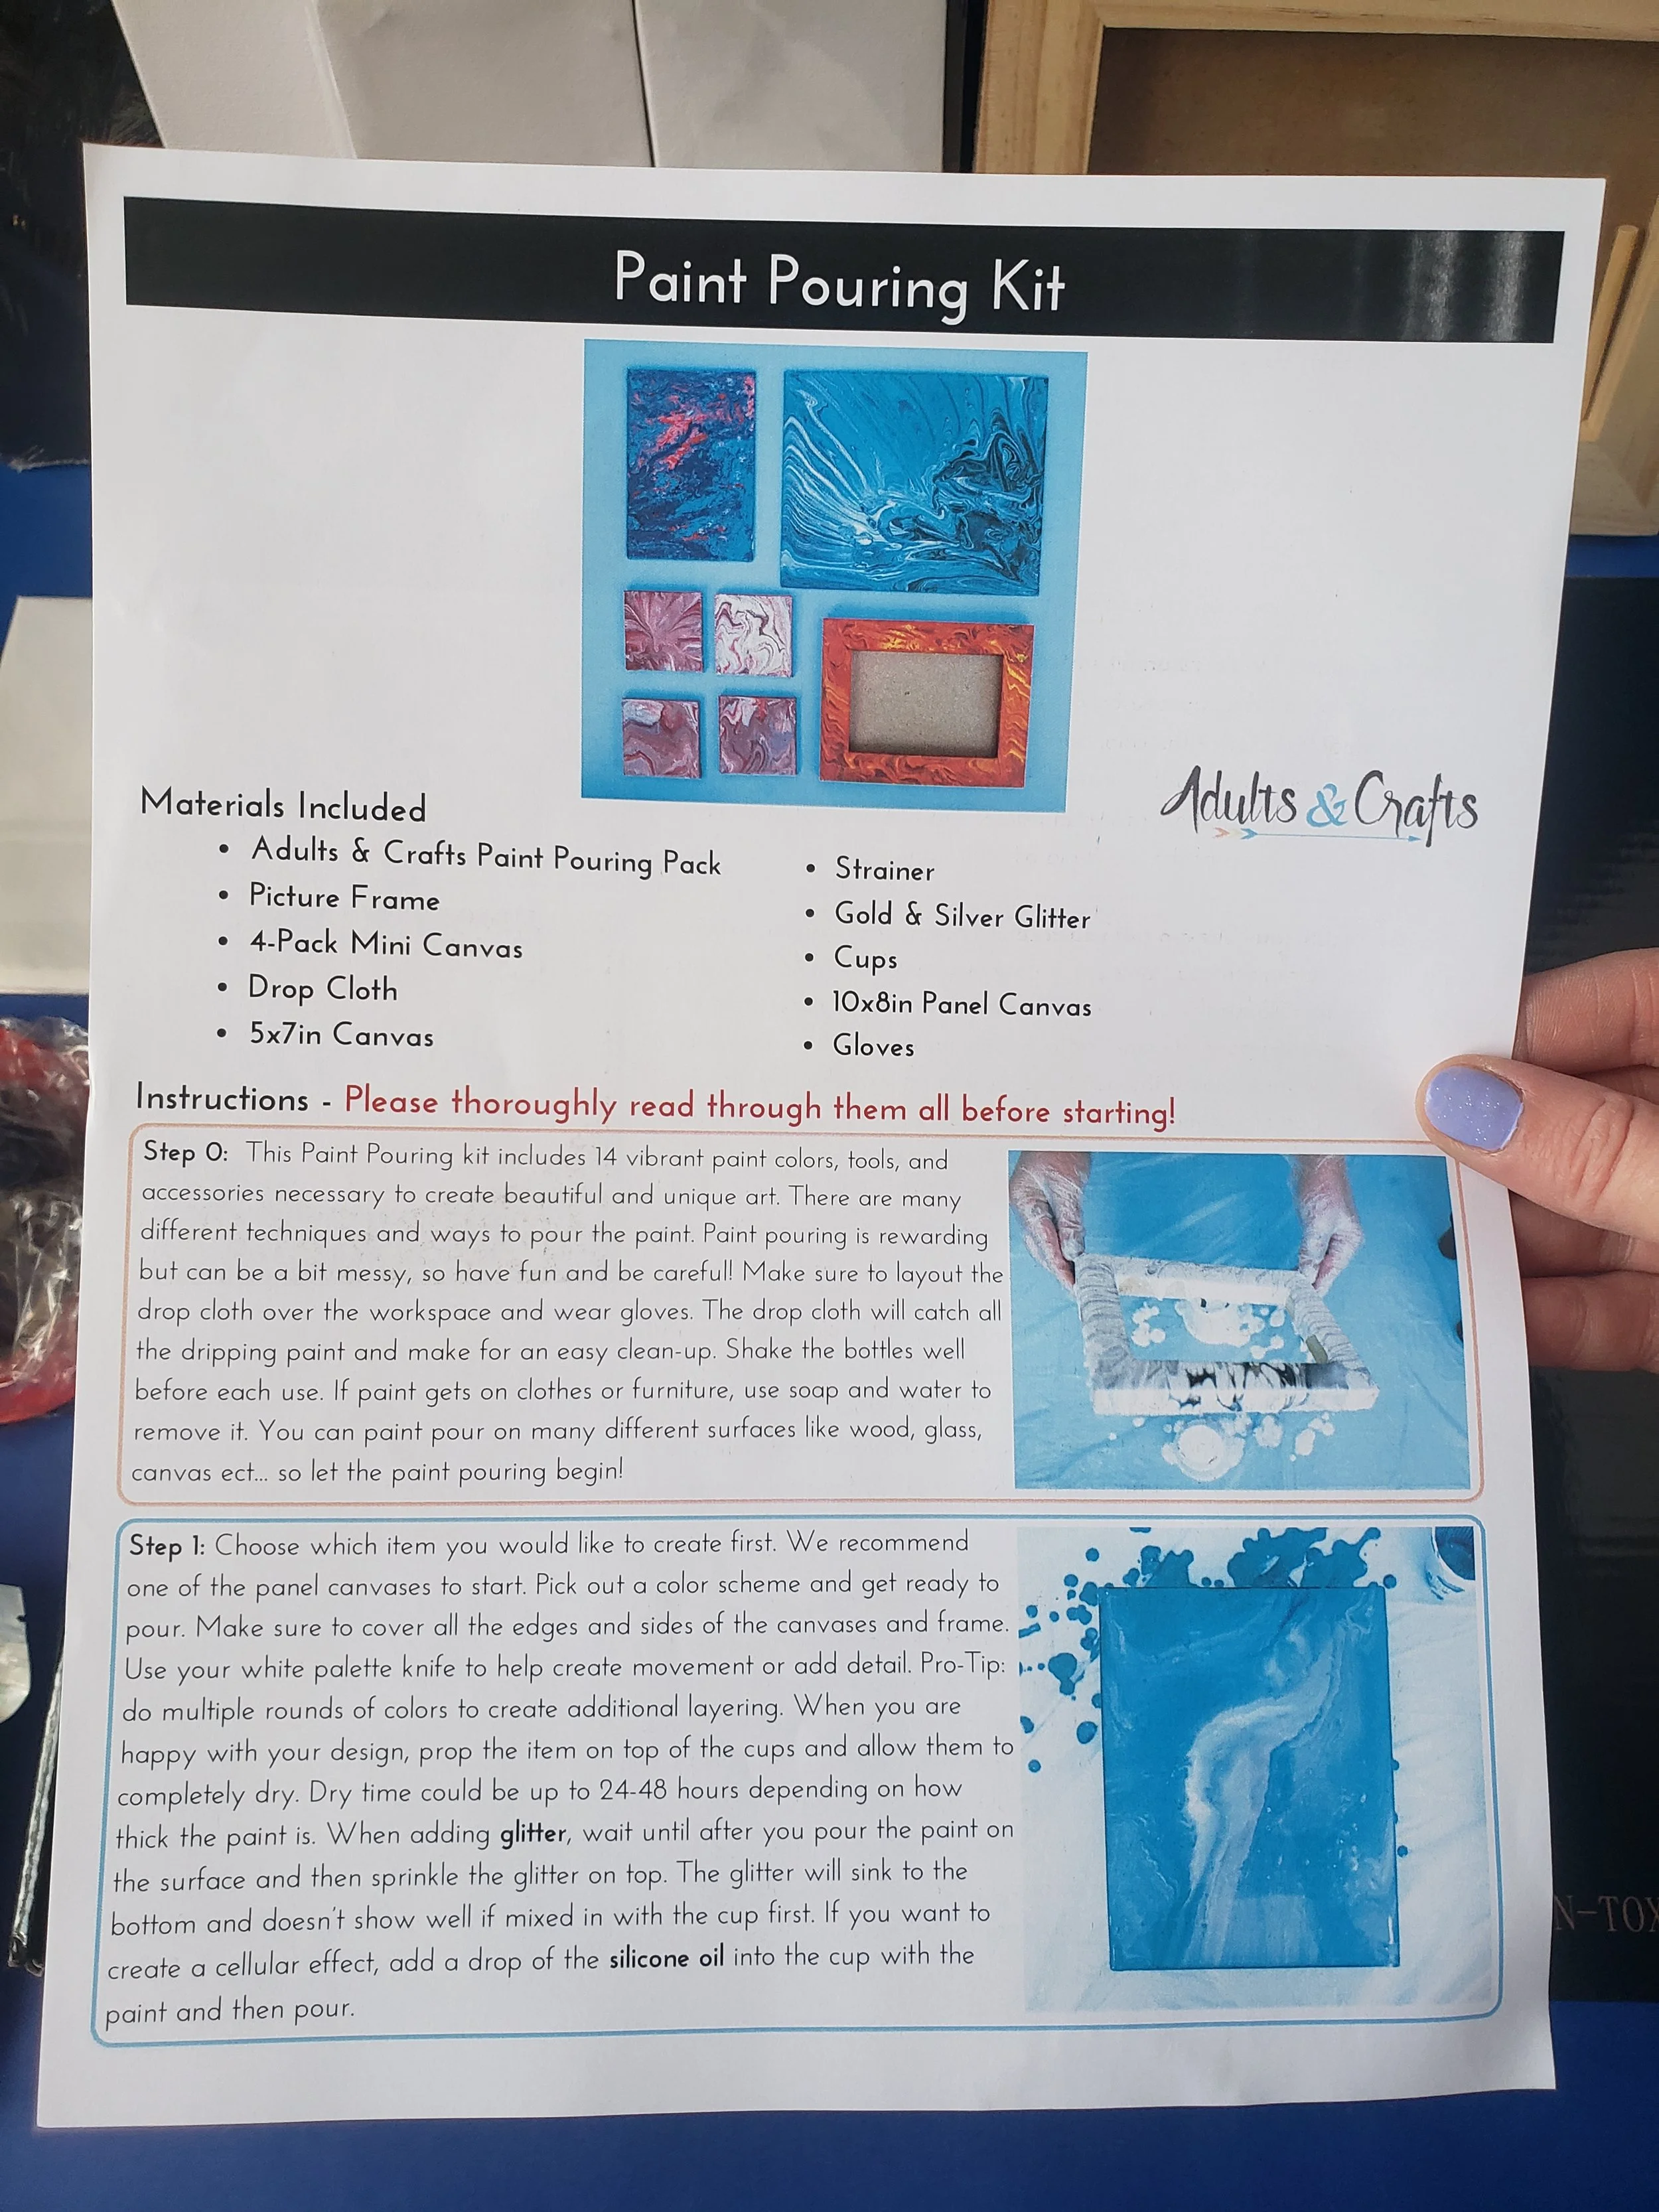 Paint Pouring Kit
Adults & Crafts
Materials Included
• Adults & Crafts Paint Pouring Pack
• Picture Frame
• 4-Pack Mini Canvas
• Drop Cloth
• 5x7in Canvas
• Strainer
• Gold & Silver Glitter
• Cups
• 10x8in Panel Canvas
• Gloves
Instructions - Please thoroughly read through them all before starting!
Step 0: This Paint Pouring kit includes 14 vibrant paint colors, tools, and
accessories necessary to create beautiful and unique art. There are many
different techniques and ways to pour the paint. Paint pouring is rewarding
but can be a bit messy, so have fun and be careful! Make sure to layout the
drop cloth over the workspace and wear gloves. The drop cloth will catch all
the dripping paint and make for an easy clean-up. Shake the bottles well
before each use. If paint gets on clothes or furniture, use soap and water to
remove it. You can paint pour on many different surfaces like wood, glass,
canvas ect... so let the paint pouring begin!
Step 1: Choose which item you would like to create first. We recommend
one of the panel canvases to start. Pick out a color scheme and get ready to
pour. Make sure to cover all the edges and sides of the canvases and frame.
Use your white palette knife to help create movement or add detail. Pro-Tip:
do multiple rounds of colors to create additional layering. When you are
happy with your design, prop the item on top of the cups and allow them to
completely dry. Dry time could be up to 24-48 hours depending on how
thick the paint is. When adding glitter, wait until after you pour the paint on
the surface and then sprinkle the glitter on top. The glitter will sink to the
bottom and doesn't show well if mixed in with the cup first. If you want to
create a cellular effect, add a drop of the silicone oil into the cup with the
paint and then pour.
N-TOX